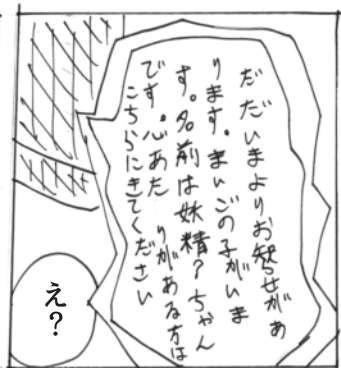 だだいまよりお知らせがあ
ります。まいごの子がいま
す。名前は妖精?ちゃん
です。心あたりがある方は
こちらにきてください
え?